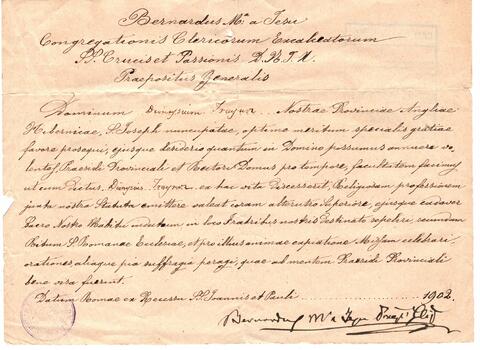 Bernardus M.ª a Jesu
Congregationis Clericorum Excalceatorum
SS. Crucis et Passionis D. N. J. X.
Praepositus Generalis
Dominum Dionysium Nostrae Provinciae Angliae
Hibernicae, S. Joseph nuncupatae, optime meritum specialis gratiae
favore prosequi, ejusque desiderio quantum in Domino possumus annuere vo-
lentes, Praesidi Provinciali et Rectori Domus pro tempore, facultatem facimus
ut cum Dictus ex hac vita discesserit, Religiosam professionem
juxta nostra Statuta emittere valeat coram alterutro Superiore, ejusque cadaver
Sacro Nostro Habitu indutum in loco Fratribus nostris destinato sepeliri, secundum
Ritum S. Romanae Ecclesiae, et pro illius animae expiatione Missam celebrari,
orationes, aliaque pia suffragia peragi, quae ad mentem Praesidis Provincialis
bene visa fuerint.
Datum Romae ex Recessu SS. Joannis et Pauli 1902.
Bernardus M.ª a Jesu